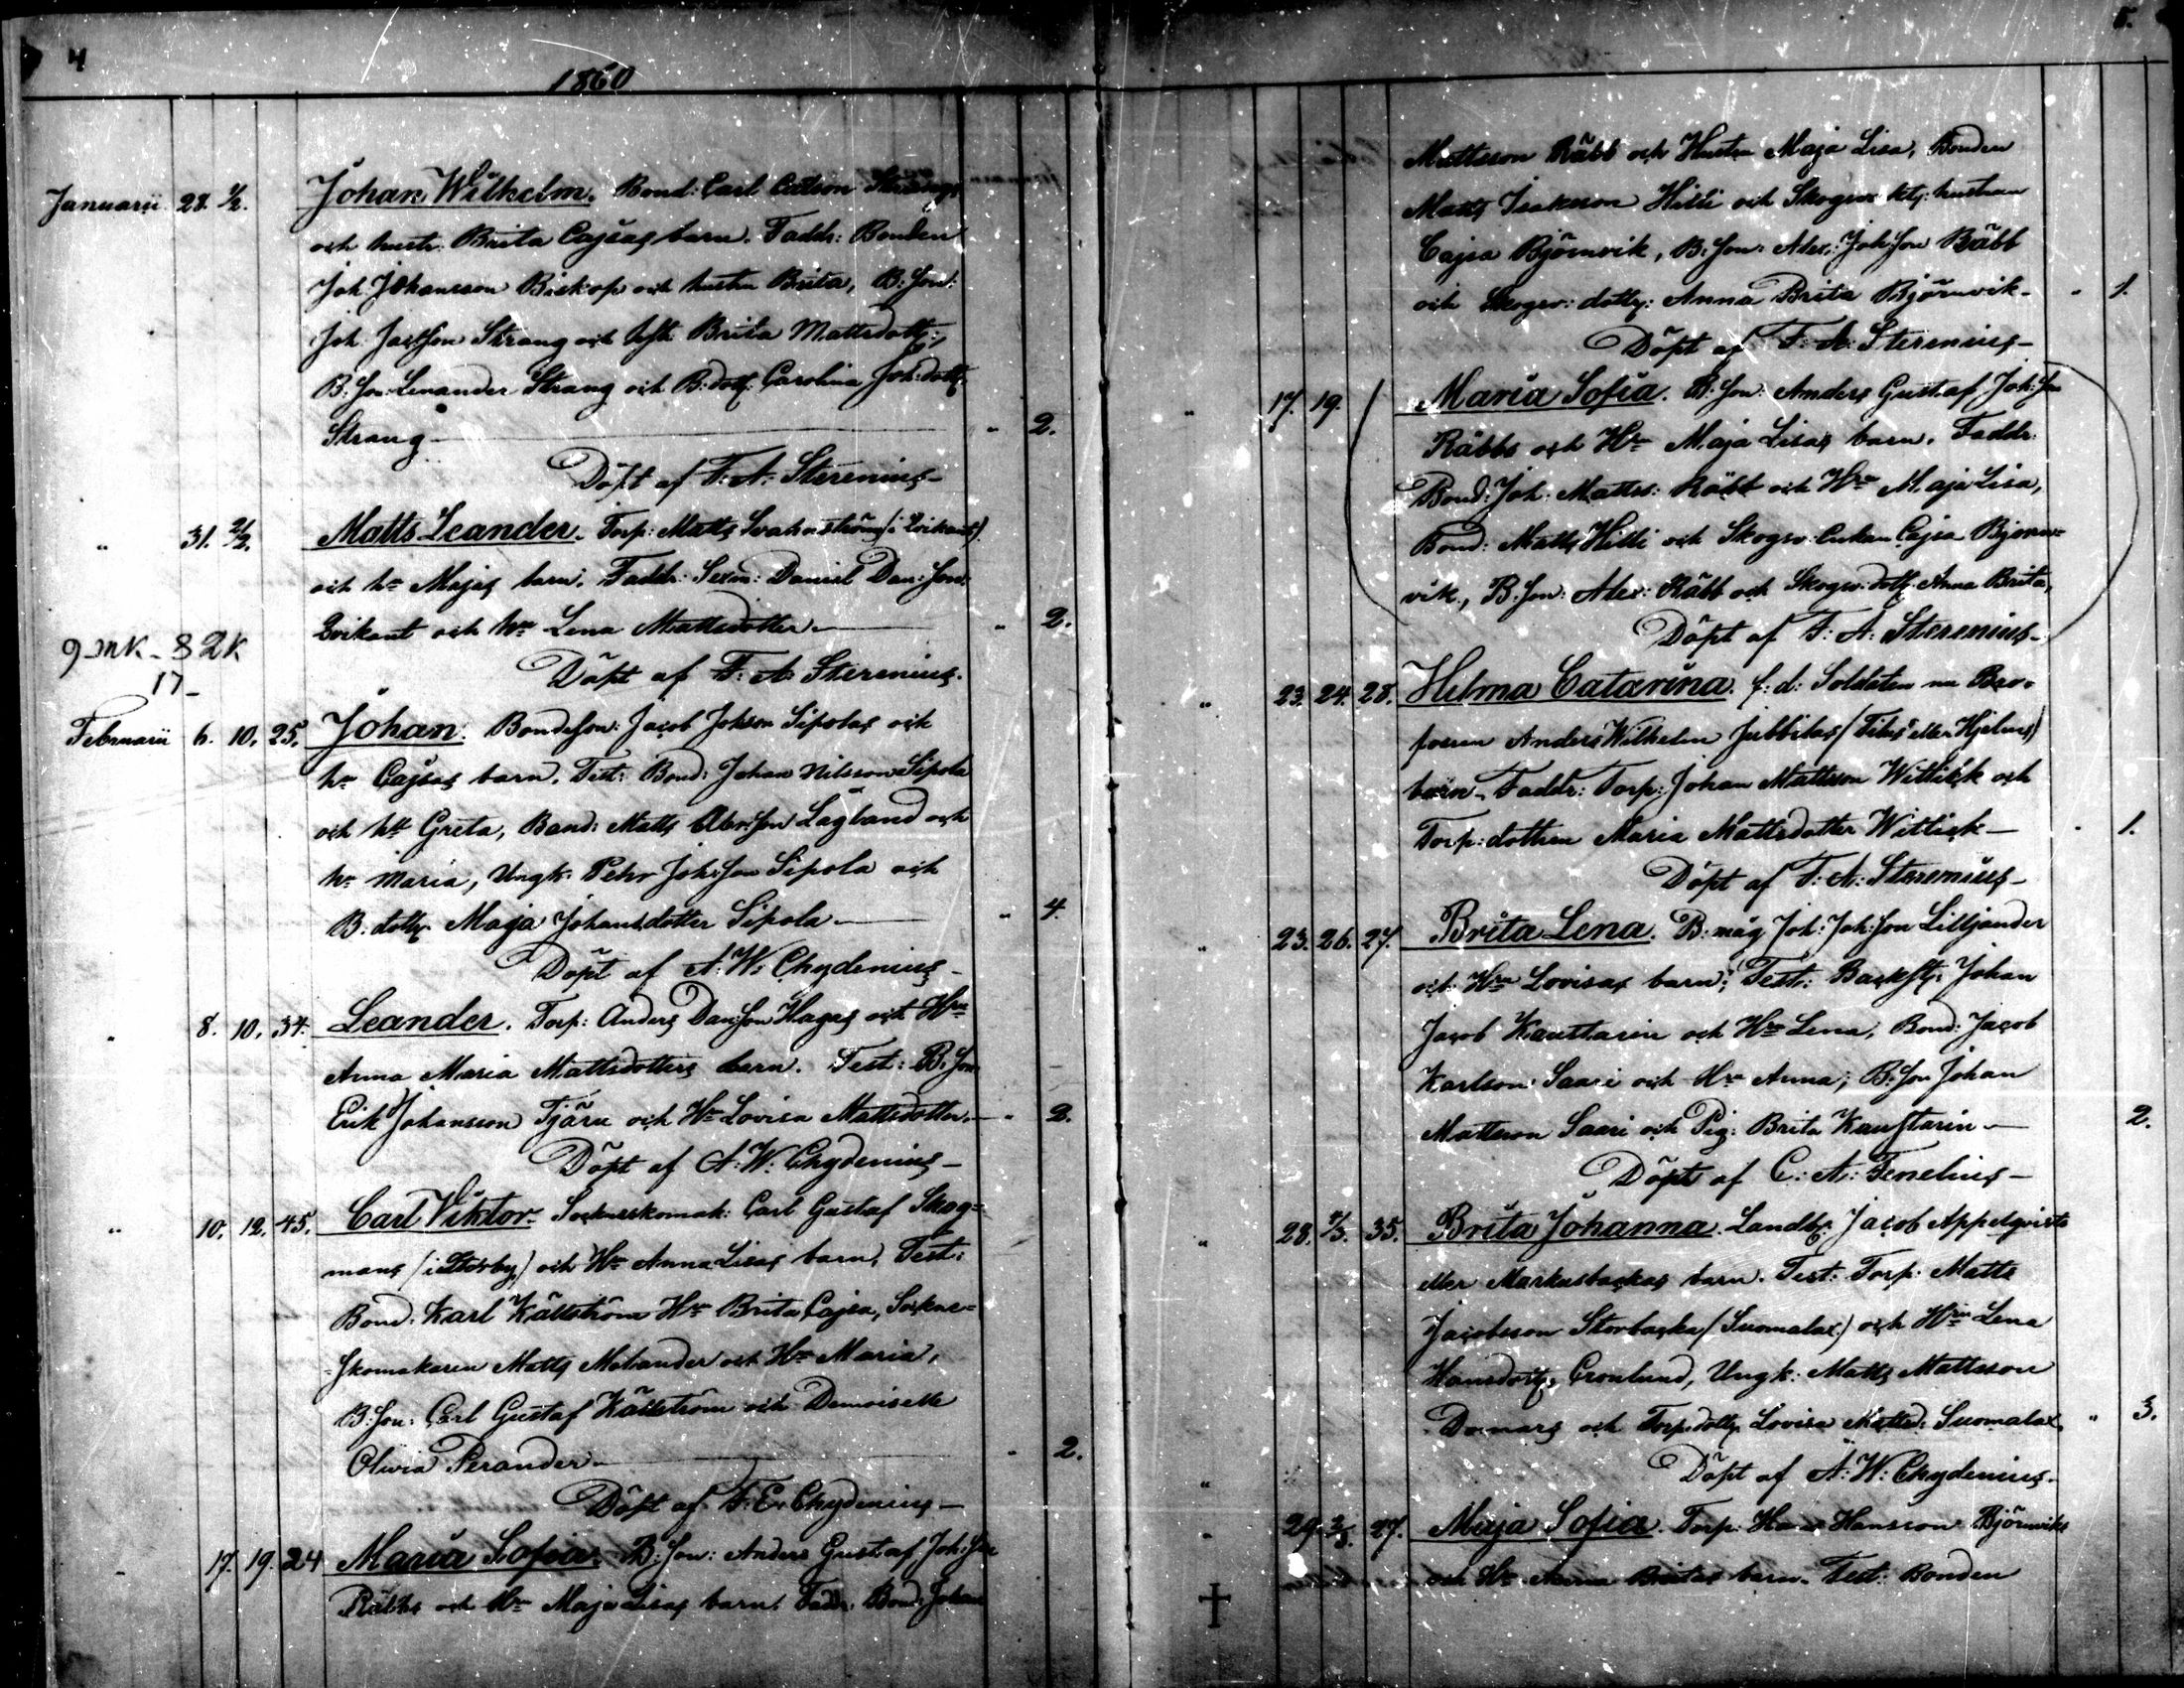 4
1860
Januarii 28. 1/2. Johan Wilhelm. Bond: Carl Carlson Strangs
och hustr: Brita Cajsas barn. Faddr: Bonden
Joh: Johansson Biskop och hustru Brita, B: Son:
Joh: Jac:Son Strang och hst: Brita Mattsdott:,
B: Son: Levander Strang och B: dott: Carolina Joh: dott:
Strang - " 2.
Döpt af F: A: Sterenius -
" 31. 2/2. Matts Leander. Torp: Matts Svahnström (i Qvikant)
och hu Majas barn. Faddr: Sexm: Daniel Dan: Son:
Qvikant och hu Lena Mattsdotter - " 2.
9 mk - 82 k Döpt af F: A: Sterenius.
17 -
Februarii 6. 10. 25. Johan. BondeSon: Jacob Johsson Sipolas och
hu Cajsas barn. Test: Bond: Johan Nilsson Sipola
och hu Greta, Bond: Matts Abr:Son Lågland och
hu Maria, Ungk: Pehr Joh:Son Sipola och
B: dottr: Maja Johansdotter Sipola - " 4.
Döpt af A: W: Chydenius -
" 8. 10. 34. Leander. Torp: Anders Dan:Son Hagas och Hu
Anna Maria Mattsdotters barn. Test: B: Son
Erik Johansson Tjäru och Hu Lovisa Mattsdotter. - " 2.
Döpt af A: W: Chydenius -
" 10. 12. 45. Carl Viktor. Sockneskomak: Carl Gustaf Skog=
mans (i Storby) och Hu Anna Lisas barn, Test:
Bond: Karl Källström Hu Brita Cajsa, Sockne=
=skomakaren Matts Melander och Hu Maria,
B: Son: Carl Gustaf Källström och Demoiselle
Olivia Perander - " 2.
Döpt af F: E: Chydenius -
" 17. 19. 24 Maria Sofia. B: Son: Anders Gustaf Joh: Son
Räbbs och Hu Maja Lisas barn. Faddr: Bond: Johan
5.
Mattsson Räbb och Hustru Maja Lisa, Bonden
Matts Isaksson Hilli och Skogsv: hustrun
Cajsa Björnvik, B: Son: Alex: Joh:Son Räbb
och Skogsv: dottr: Anna Brita Björnvik - " 1.
Döpt af F: A: Sterenius -
" 17. 19. Maria Sofia. B: Son: Anders Gustaf Joh: Son
Räbbs och Hu Maja Lisas barn. Faddr:
Bond: Joh: Matts: Räbb och Hu Maja Lisa,
Bond: Matts Hilli och Skogsv: Enkan Cajsa Björn=
vik, B: Son: Alex: Räbb och Skogsv: dottr: Anna Brita,
Döpt af F: A: Sterenius -
" 23. 24. 28. Helma Catarina. f: d: Soldaten nu Bro=
foeren Anders Wilhelm Jubbilas (Titus eller Hjelms)
barn. Faddr: Torp: Johan Mattsson Wittick och
Torp: dottren Maria Mattsdotter Wittick - " 1.
Döpt af F: A: Sterenius -
" 23. 26. 27. Brita Lena. B: måg Joh: Joh:Son Lilljander
och Hu Lovisas barn; Test: Backst: Johan
Jacob Kaustarin och Hu Lena, Bond: Jacob
Karlson Saari och Hu Anna, B: Son Johan
Mattsson Saari och Pig: Brita Kaustarin - 2.
Döpt af C: A: Fenelius -
" 28. 4/3. 35. Brita Johanna. Landb: Jacob Appelqvists
eller Markusbackas barn. Test: Torp: Matts
Jacobsson Storbacka (Suomalax) och Hu Lena
Hansdottr: Gronlund, Ungk: Matts Mattsson
Domars och Torp: dottr: Lovisa Mattsd: Suomalax " 3.
" Döpt af A: W: Chydenius -
" 29. 2/3. 27. Maja Sofia. Torp: Hans Hansson Björnviks
och Hu Anna Britas barn. Test: Bonden